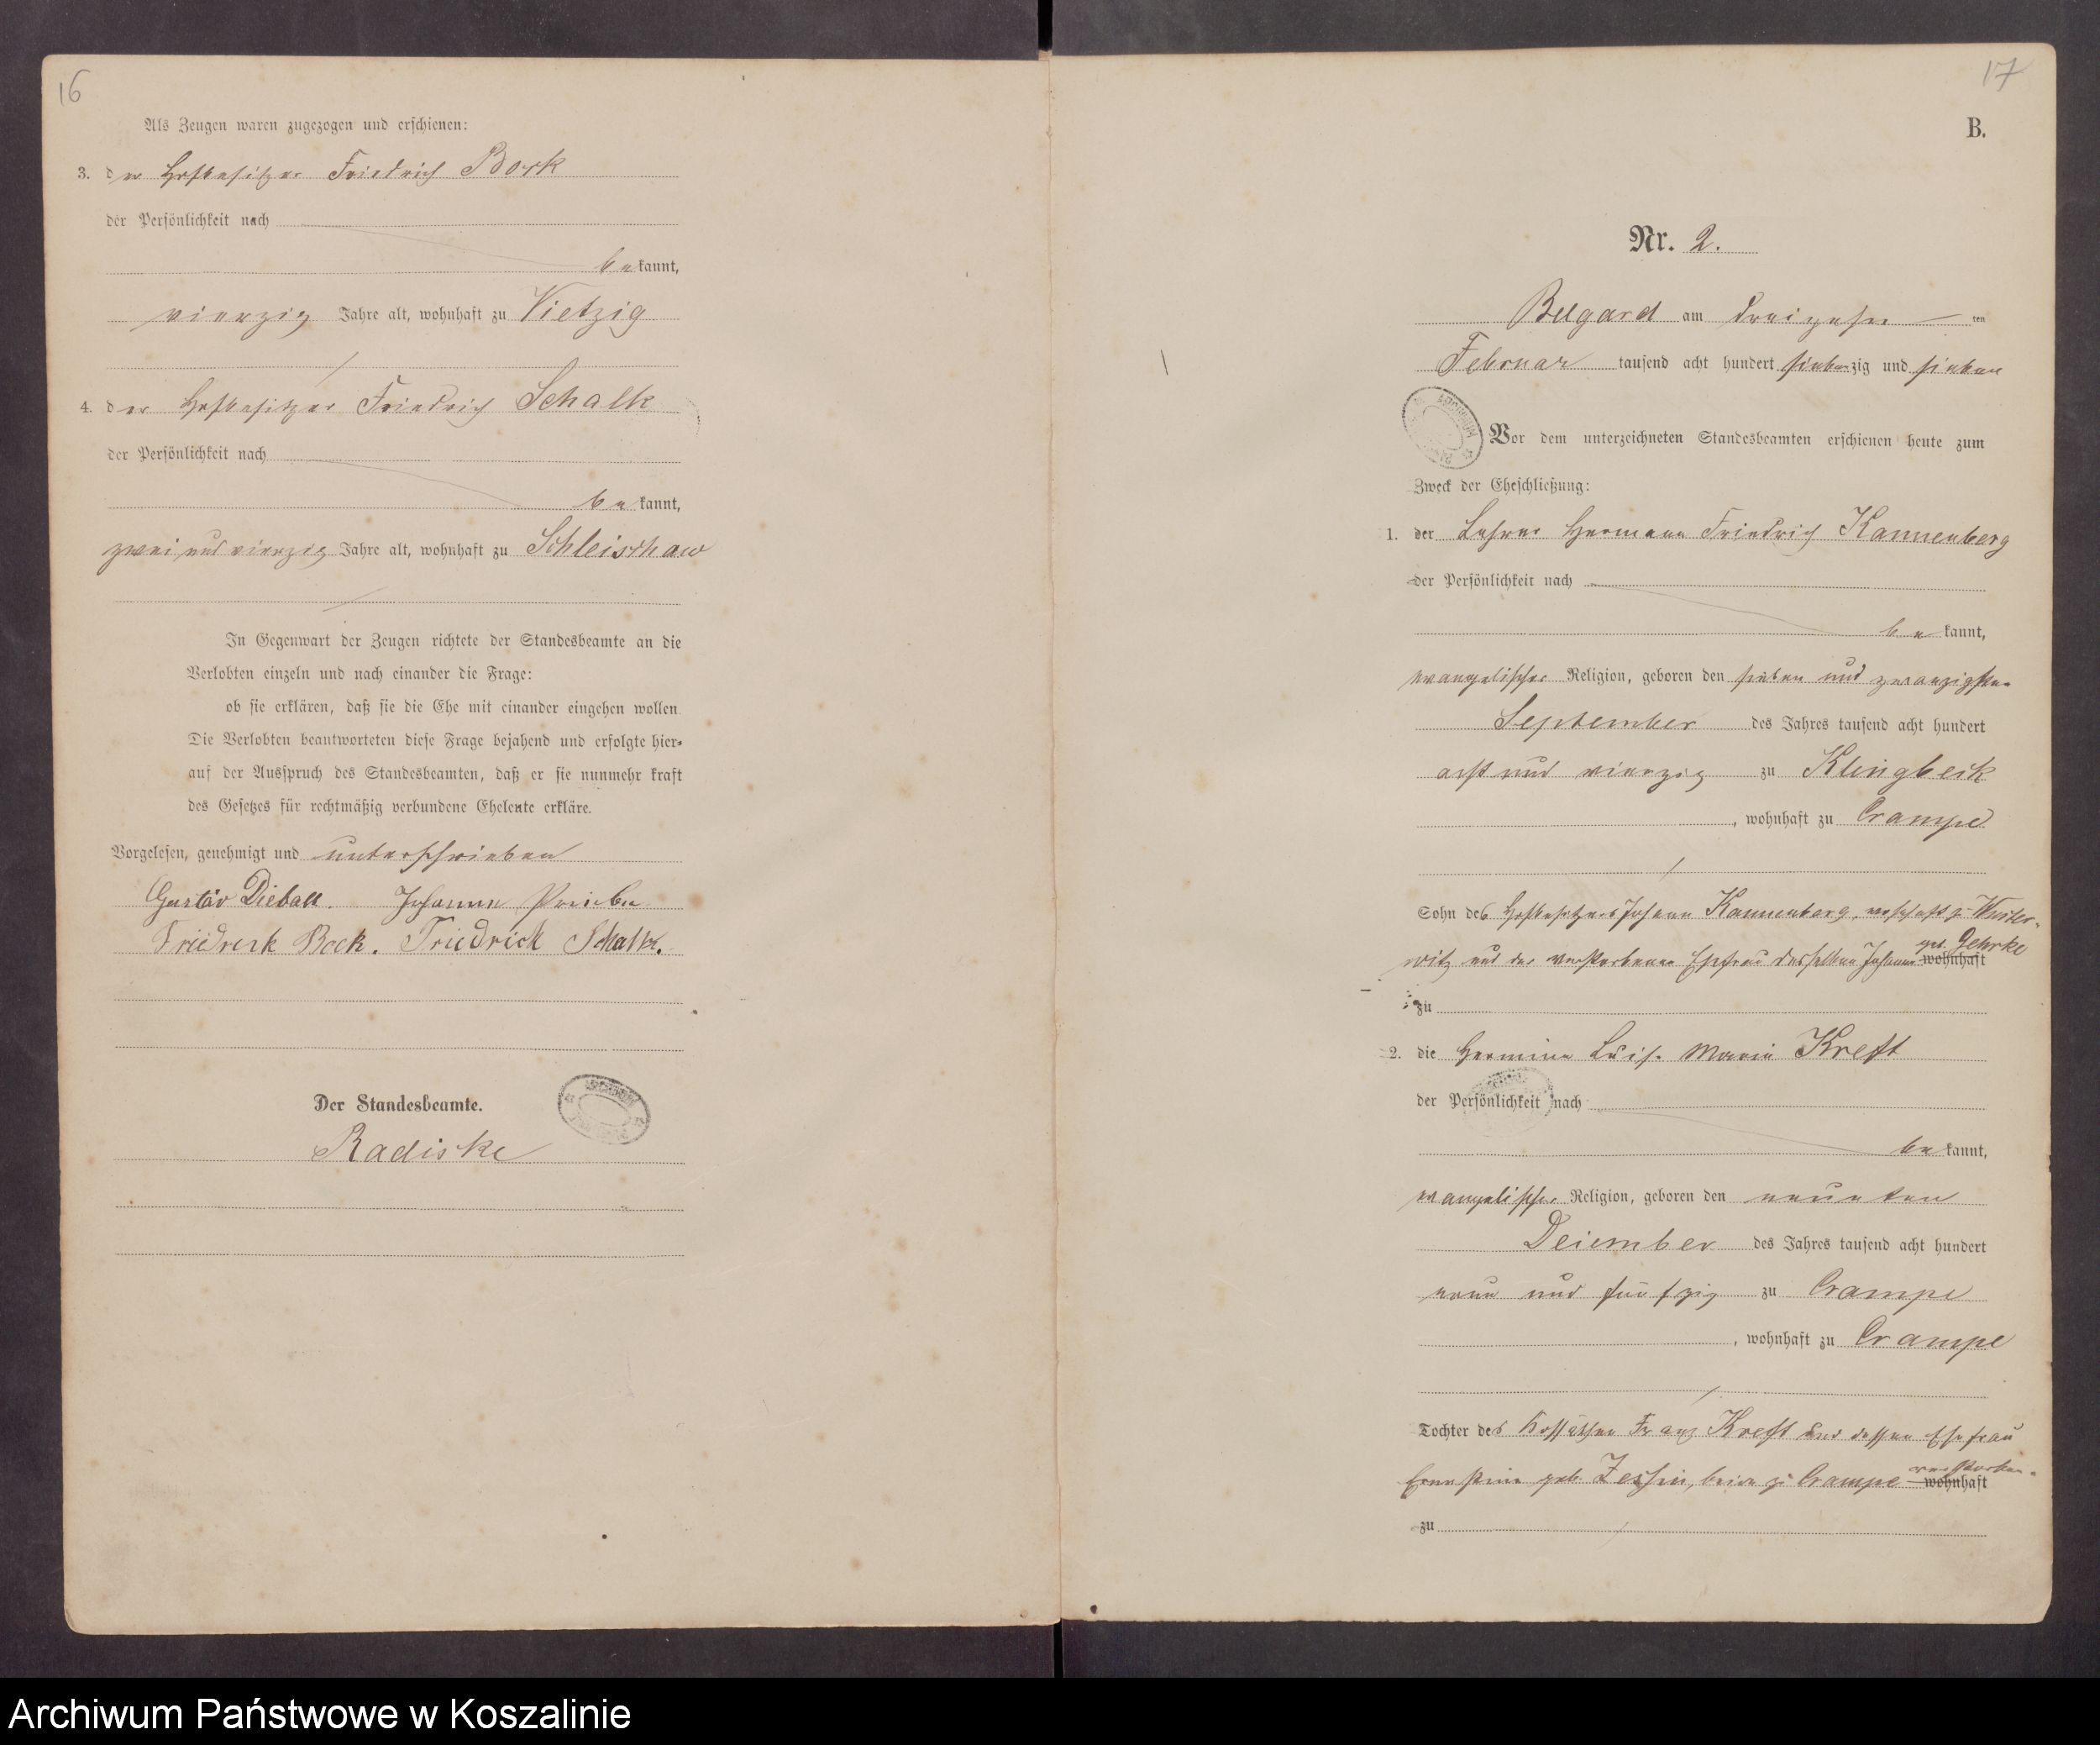 16
Als Zeugen waren zugezogen und erschienen:
3. der Hofbesitzer Friedrich Bock
der Persönlichkeit nach
bekannt,
vierzig Jahre alt, wohnhaft zu Vietzig
4. der Hofbesitzer Friedrich Schalk
der Persönlichkeit nach
bekannt,
zwei und vierzig Jahre alt, wohnhaft zu Schleischow
In Gegenwart der Zeugen richtete der Standesbeamte an die
Verlobten einzeln und nach einander die Frage:
ob sie erklären, daß sie die Ehe mit einander eingehen wollen.
Die Verlobten beantworteten diese Frage bejahend und erfolgte hier-
auf der Ausspruch des Standesbeamten, daß er sie nunmehr kraft
des Gesetzes für rechtmäßig verbundene Eheleute erkläre.
Vorgelesen, genehmigt und unterschrieben
Gustav Dieball. Johanne Priebe
Friedrich Bock. Friedrich Schalk.
Der Standesbeamte.
Radiske
17
B.
Nr. 2.
Belgard am dreizehnten
Februar tausend acht hundert siebenzig und sieben
Vor dem unterzeichneten Standesbeamten erschienen heute zum
Zweck der Eheschließung:
1. der Lehrer Hermann Friedrich Kannenberg
der Persönlichkeit nach
bekannt,
evangelischer Religion, geboren den sieben und zwanzigsten
September des Jahres tausend acht hundert
acht und vierzig zu Klingbeck
, wohnhaft zu Crampe
Sohn des Hofbesitzers Johann Kannenberg, wohnhaft zu
witz und der verstorbenen Ehefrau desselben geb. Gehrke wohnhaft
zu
2. die Hermine Luise Marie Kreft
der Persönlichkeit nach
bekannt,
evangelischer Religion, geboren den neunten
Dezember des Jahres tausend acht hundert
neun und fünfzig zu Crampe
, wohnhaft zu Crampe
Tochter des Kossäthen Franz Kreft und dessen Ehefrau
Ernestine geb. Zessin, beide zu Crampe verstorben. wohnhaft
zu
Archiwum Państwowe w Koszalinie